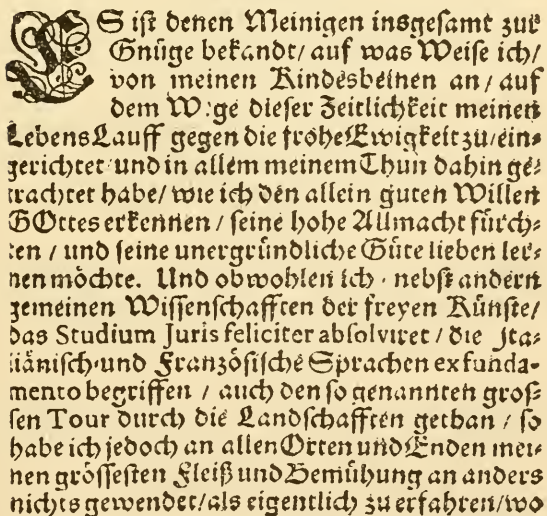 ES ist denen Meinigen insgesamt zur
Gnüge bekandt/ auf was Weise ich/
von meinen Kindesbeinen an/ auf
dem Wege dieser Zeitlichkeit meinen
LebensLauff gegen die frohe Ewigkeit zu/ ein⸗
gerichtet und in allem meinem Thun dahin ge⸗
trachtet habe/ wie ich den allein guten Willen
GOttes erkennen / seine hohe Allmacht fürch⸗
ten / und seine unergründliche Güte lieben ler⸗
nen möchte. Und obwohlen ich · nebst andern
gemeinen Wissenschafften der freyen Künste/
das Studium Juris feliciter absolviret / die Ita⸗
liänisch⸗und Französische Sprachen ex funda-
mento begriffen / auch den so genannten gros⸗
sen Tour durch die Landschafften gethan / so
habe ich jedoch an allen Orten und Enden mei⸗
nen grössesten Fleiß und Bemühung an anders
nichts gewendet/ als eigentlich zu erfahren/ wo